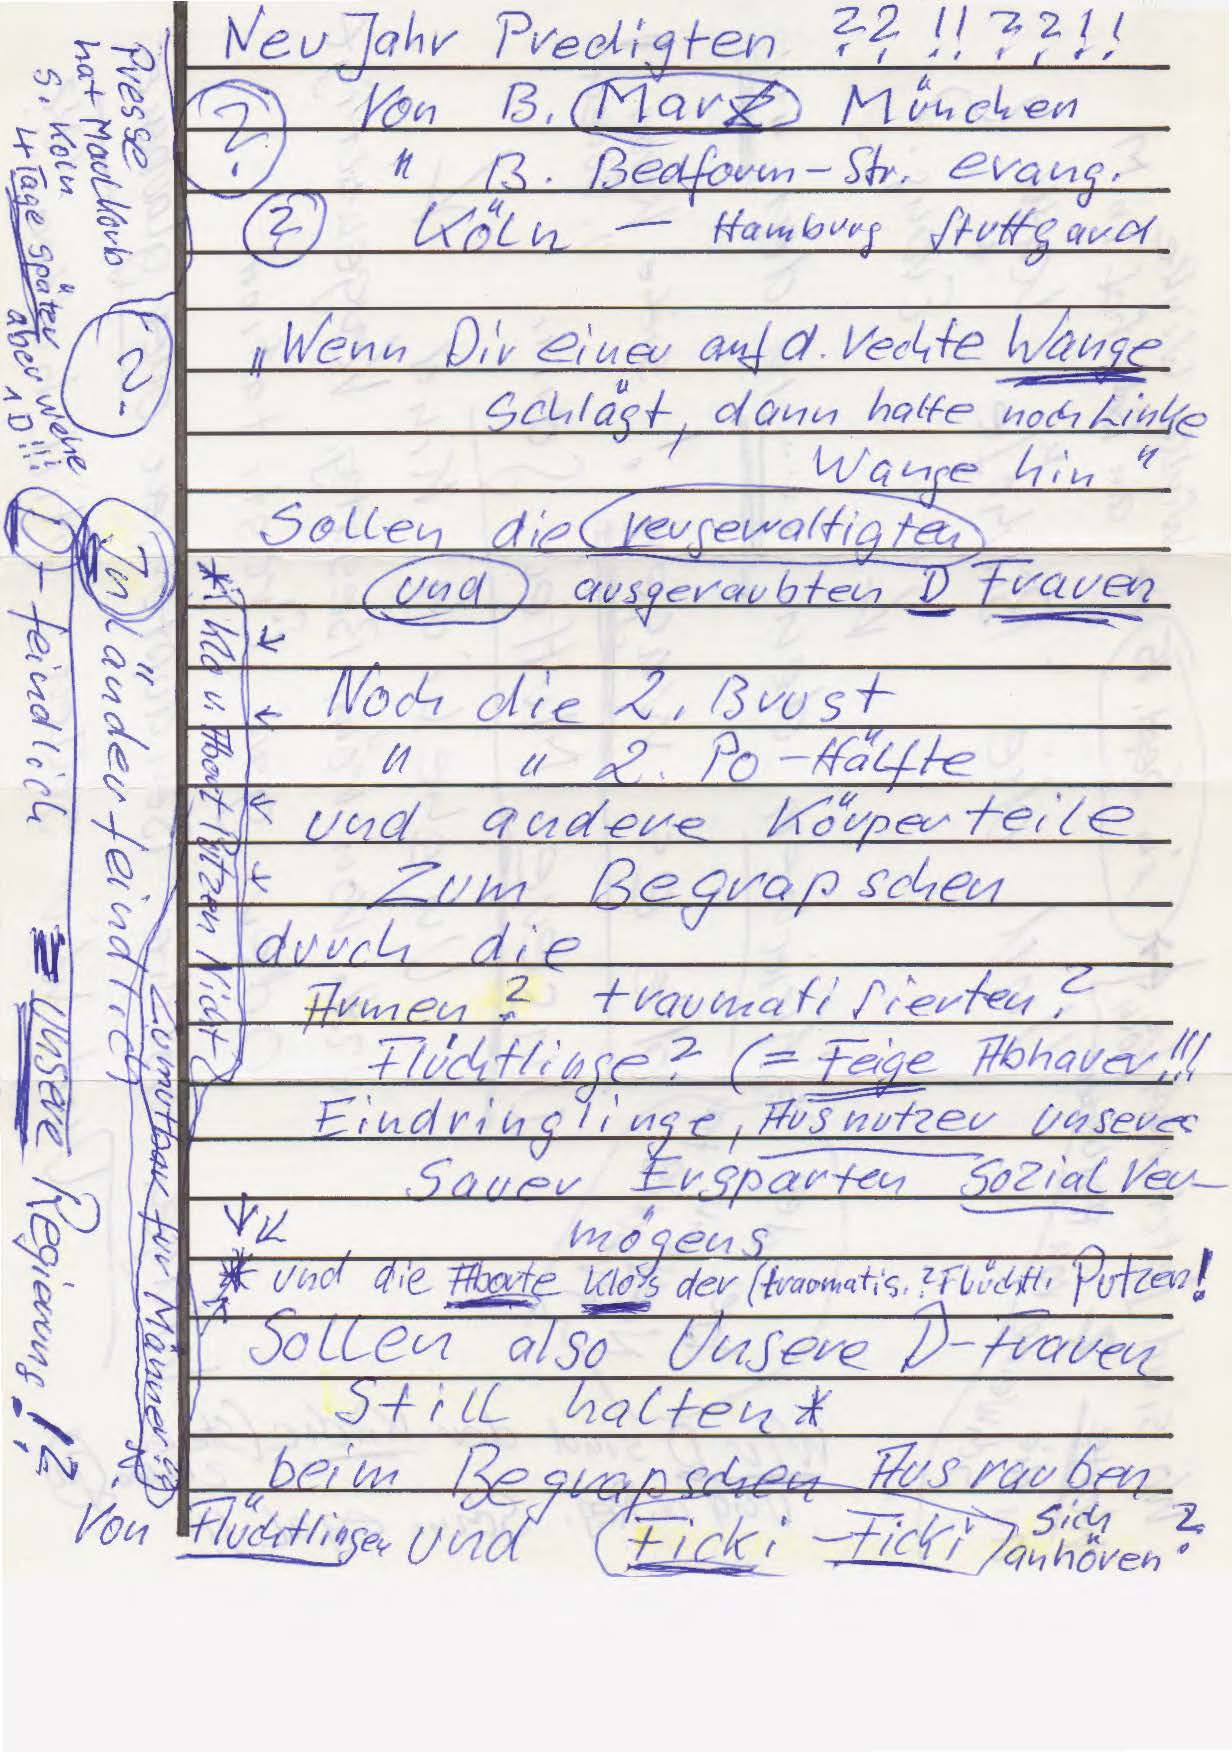 Neu Jahr Predigten ??!!??!!
? Von B. Marx München
" B. Bedform-Str. evang.
? Köln — Hamburg Stuttgard
"Wenn Dir einer auf d. rechte Wange
Schlägt, dann halte noch Linke
Wange hin"
Sollen die vergewaltigten
und ausgeraubten D Frauen
Noch die 2. Brust
" " 2. Po-Hälfte
und andere Körperteile
Zum Begrapschen
durch die
Armen? traumatisierten?
Flüchtlinge? (= Feige Abhauer!!!
Eindringlinge, Ausnutzer unseres
Sauer Ersparten Sozial Ver-
mögens
* und die Aborte Klo's der (traumatis.? Flüchtl. Putzen!
Sollen also Unsere D-Frauen
Still halten *
beim Begrapschen Ausrauben
Von Flüchtlingen und (Ficki-Ficki) sich anhören?
Presse
hat Maulkorb
s. Köln
4 Tage später
aber wehe
1 D!!!
?
D-feindlich = Unsere Regierung!?
Inländerfeindlich
*Klo u. Abort Putzen Nicht
Zumutbar für Männer??
*